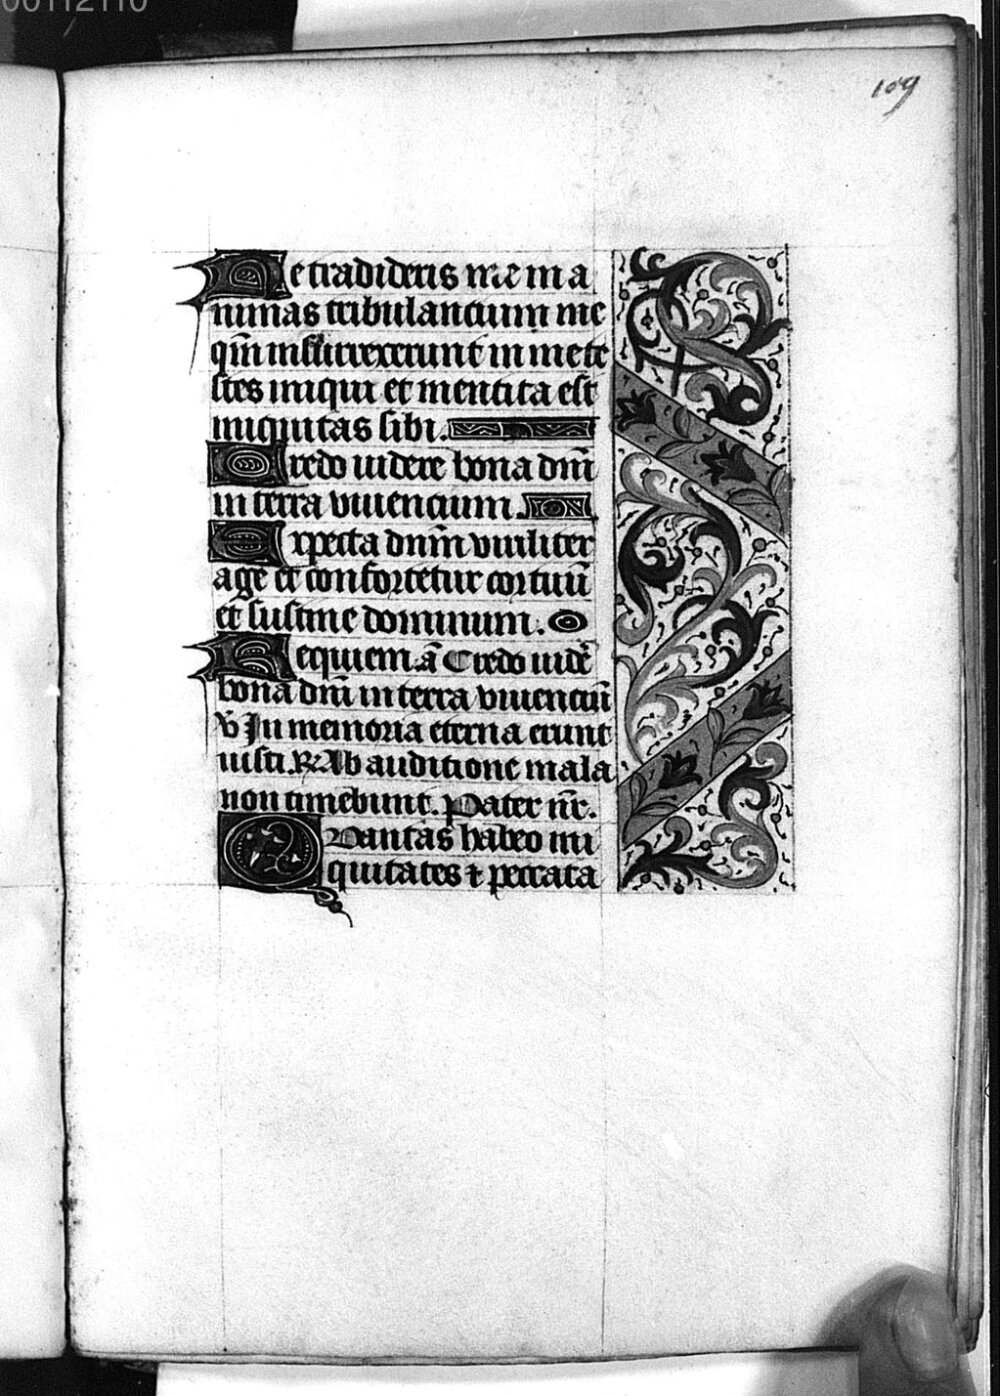 00112110
109
Ne tradideris me in a
nimas tribulantium me
qm̄ insurrexerunt in me te
stes iniqui et mentita est
iniquitas sibi.
Credo videre bona dn̄i
in terra viventium.
Expecta dnm̄ viriliter
age et confortetur cor tuū
et sustine dominum.
Requiem. ā Credo vidē
bona dn̄i in terra viventiū
V̄ In memoria eterna erunt
iusti. R Ab auditione mala
non timebunt. Pater nr̄.
Quantas habeo ini
quitates ⁊ peccata